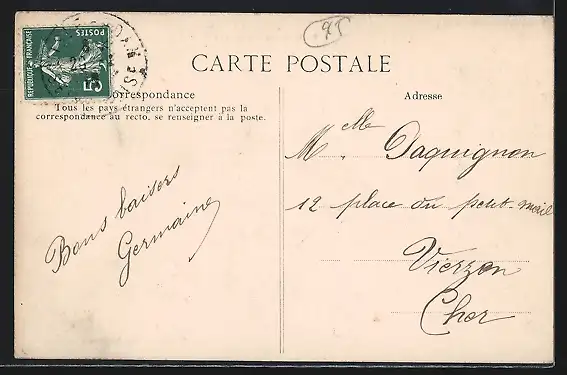 POSTES
RÉPUBLIQUE FRANÇAISE
5c
CARTE POSTALE
Correspondance
Tous les pays étrangers n'acceptent pas la
correspondance au recto, se renseigner à la poste.
Bons baisers
Germaine
Adresse
Melle Daquignon
12 place du petit-mail
Vierzon
Cher